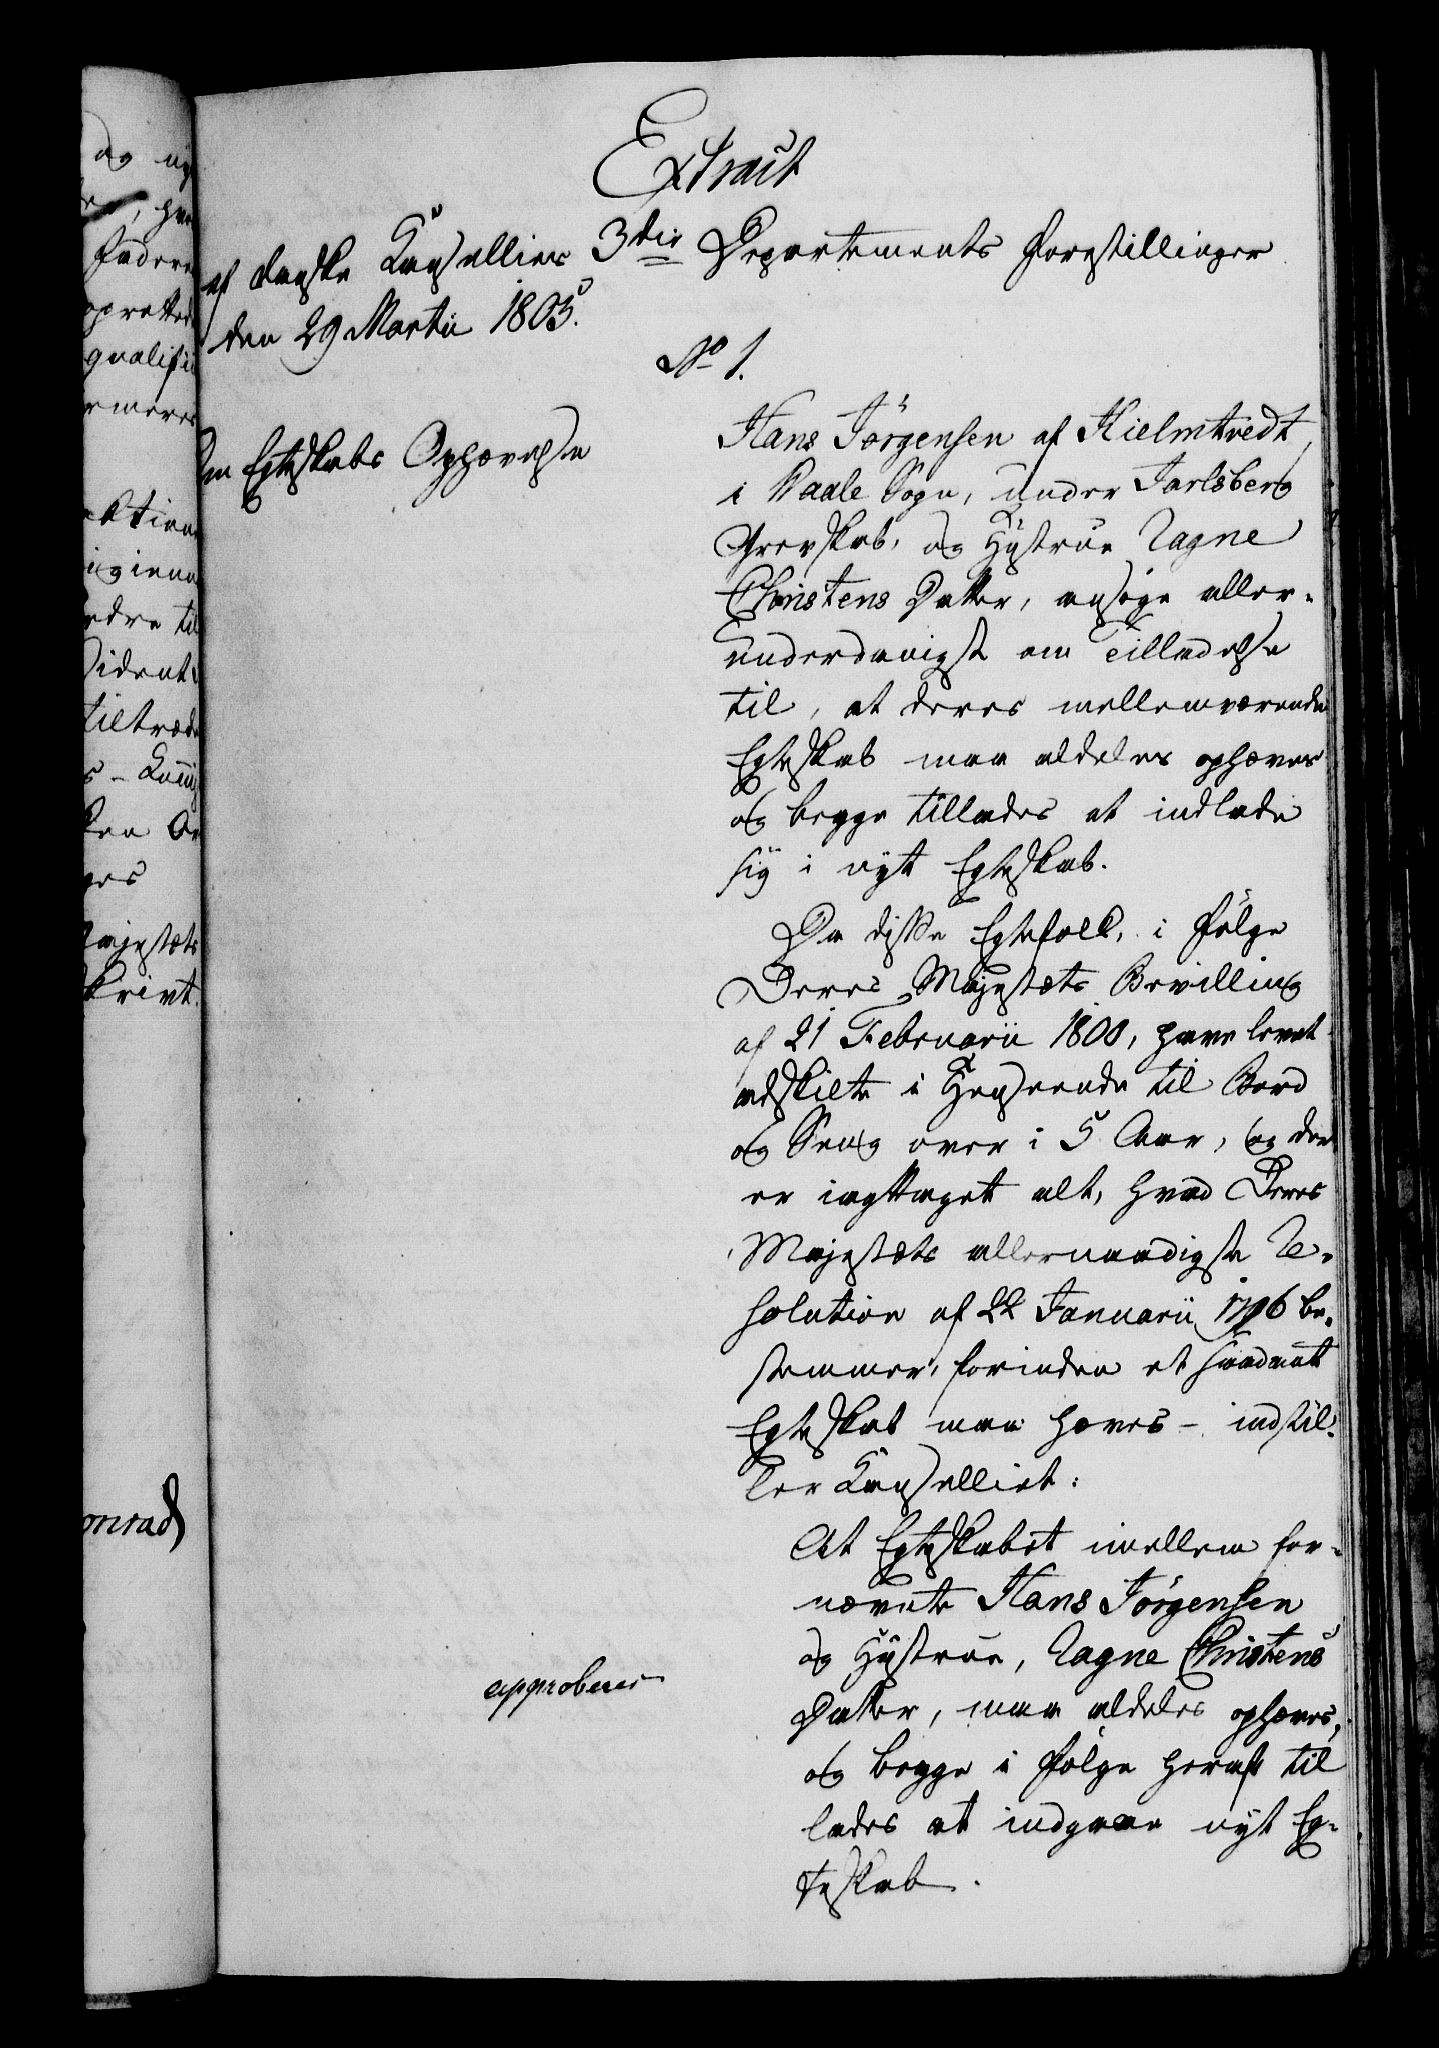 Extract
af danske Cancelliers 3die Departements Forestillinger
den 29 Martii 1805.
No 1.
Om Egteskabs Ophævelse
Hans Jørgensen af Kielmtvedt,
i Raale Sogn, under Jarlsberg
Grevskab, og Hustrue Ragne
Christens Datter, ansøge aller-
underdanigst om Tilladelse
til, at deres mellemværende
Egteskab maa aldeles ophæves
og begge tillades at indlade
sig i nyt Egteskab.
Da disse Egtefolk, i Følge
Deres Majestæts Bevilling
af 21 Februarii 1800, have levet
adskilte i Henseende til Bord
og Seng over i 5 Aar, og der
er iagttaget alt, hvad Deres
Majestæts allernaadigste Re-
solution af 22 Januarii 1796 be-
stemmer, forinden et saadant
Egteskab maa hæves - indstil-
ler Cancelliet:
At Egteskabet imellem for-
nævnte Hans Jørgensen
og Hustrue, Ragne Christens
Datter, maa aldeles ophæves,
approberes
og begge i Følge heraf til
lades at indgaae nyt Eg-
teskab.
og
Fædre
oprette
ermeres
til
tiltræde
Majestæts
onrad